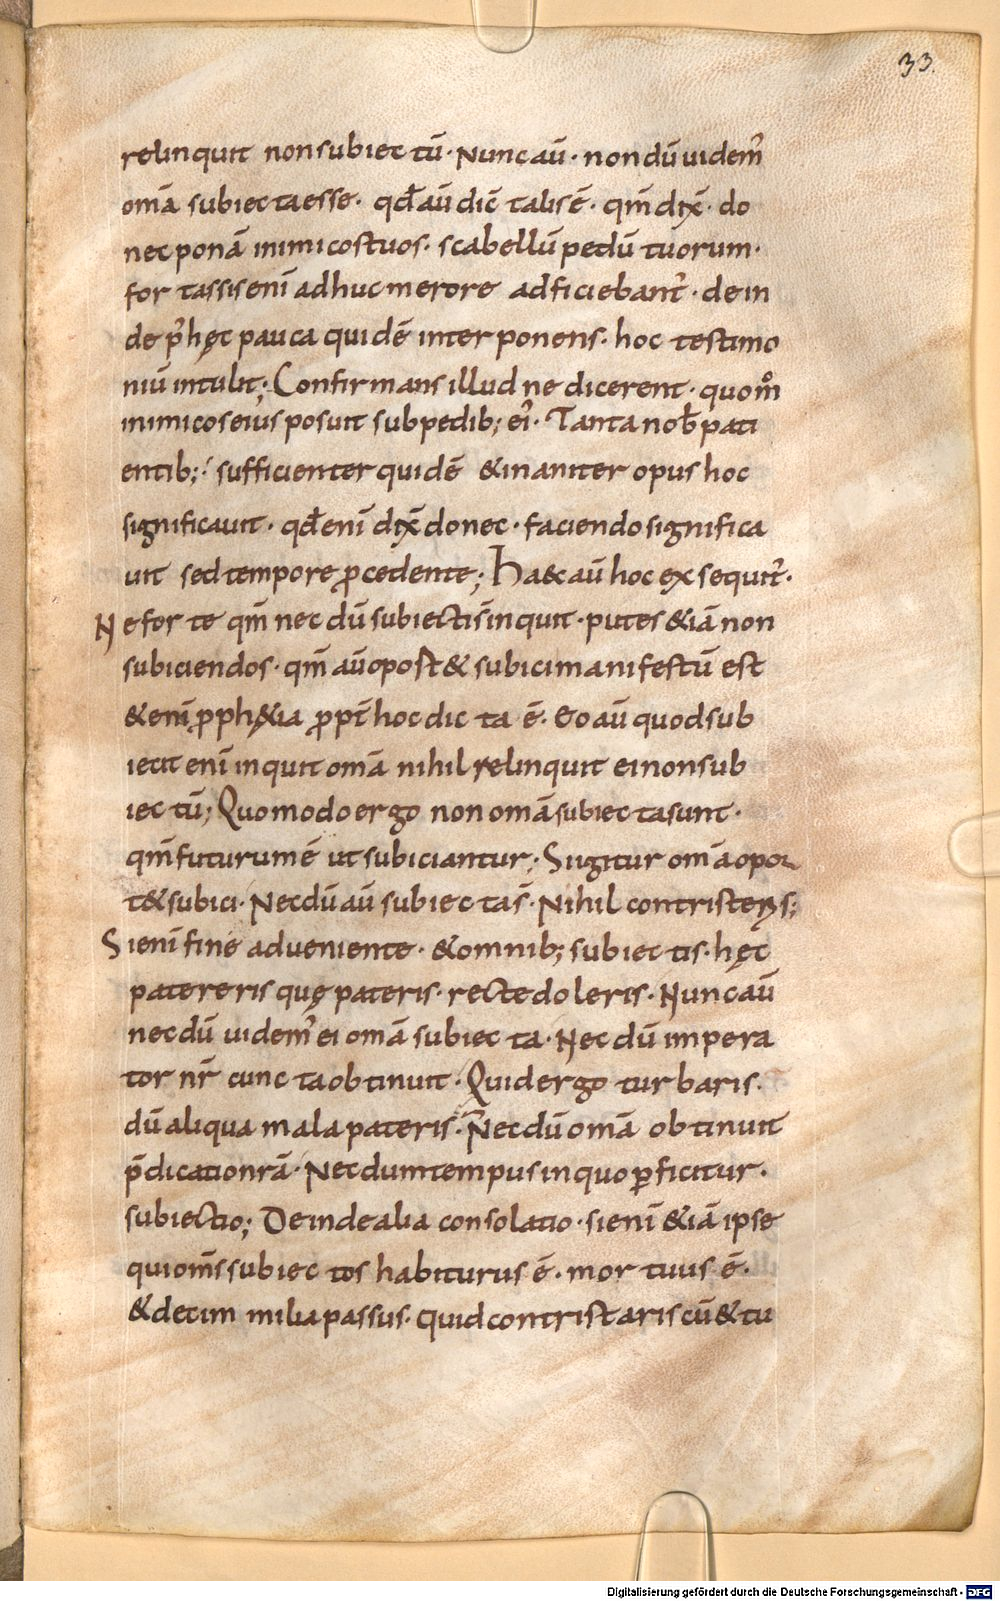 33.
relinquit non subiectū· Nunc aū· nondū uidem̄
om̄a subiecta esse· qđ aū dic̄ talis ē· qm̄ dix̄· do
nec ponā inimicos tuos· scabellū pedū tuorum·
fortassis enī adhuc merore adficiebant᷑· dein
de p᷑ hęc pauca quidē interponens· hoc testimo
niū intulit; Confirmans illud ne dicerent· quom̊
inimicos eius posuit sub pedib; ei᷑· Tanta nob̄ pati
entib;· sufficienter quidē & inaniter opus hoc
significauit· qđ enī dix̄ donec· faciendo significa
uit sed tempore ꝓcedente; Ha& aū hoc exsequit᷑·
Ne forte qm̄ necdū subiectis inquit· putes &iā non
subiciendos· qm̄ aū oport& subici manifestū est
&enī ꝓph&ia ꝓpt̄ hoc dicta ē· Eo aū quod sub
iecit enī inquit om̄a nihil relinquit ei non sub
iectū; Quomodo ergo non om̄a subiecta sunt·
qm̄ futurum ē ut subiciantur; Si igitur om̄a opor
t& subici· Necdū aū subiecta s̄· Nihil contristeris;
Si enī fine adueniente· & omnib; subiectis· hęc
patereris quę pateris· recte doleris· Nunc aū
necdū uidem᷑ ei om̄a subiecta· Necdū impera
tor nr̄ cuncta obtinuit· Quid ergo turbaris·
dū aliqua mala pateris· Necdū om̄a obtinuit
p̄dicatio nrā· Necdum tempus in quo ꝑficitur·
subiectio; Deinde alia consolatio· si enī &iā ipse
qui om̄s subiectos habiturus ē· mortuus ē·
& decim milia passus· quid contristaris cū & tu
Digitalisierung gefördert durch die Deutsche Forschungsgemeinschaft - DFG